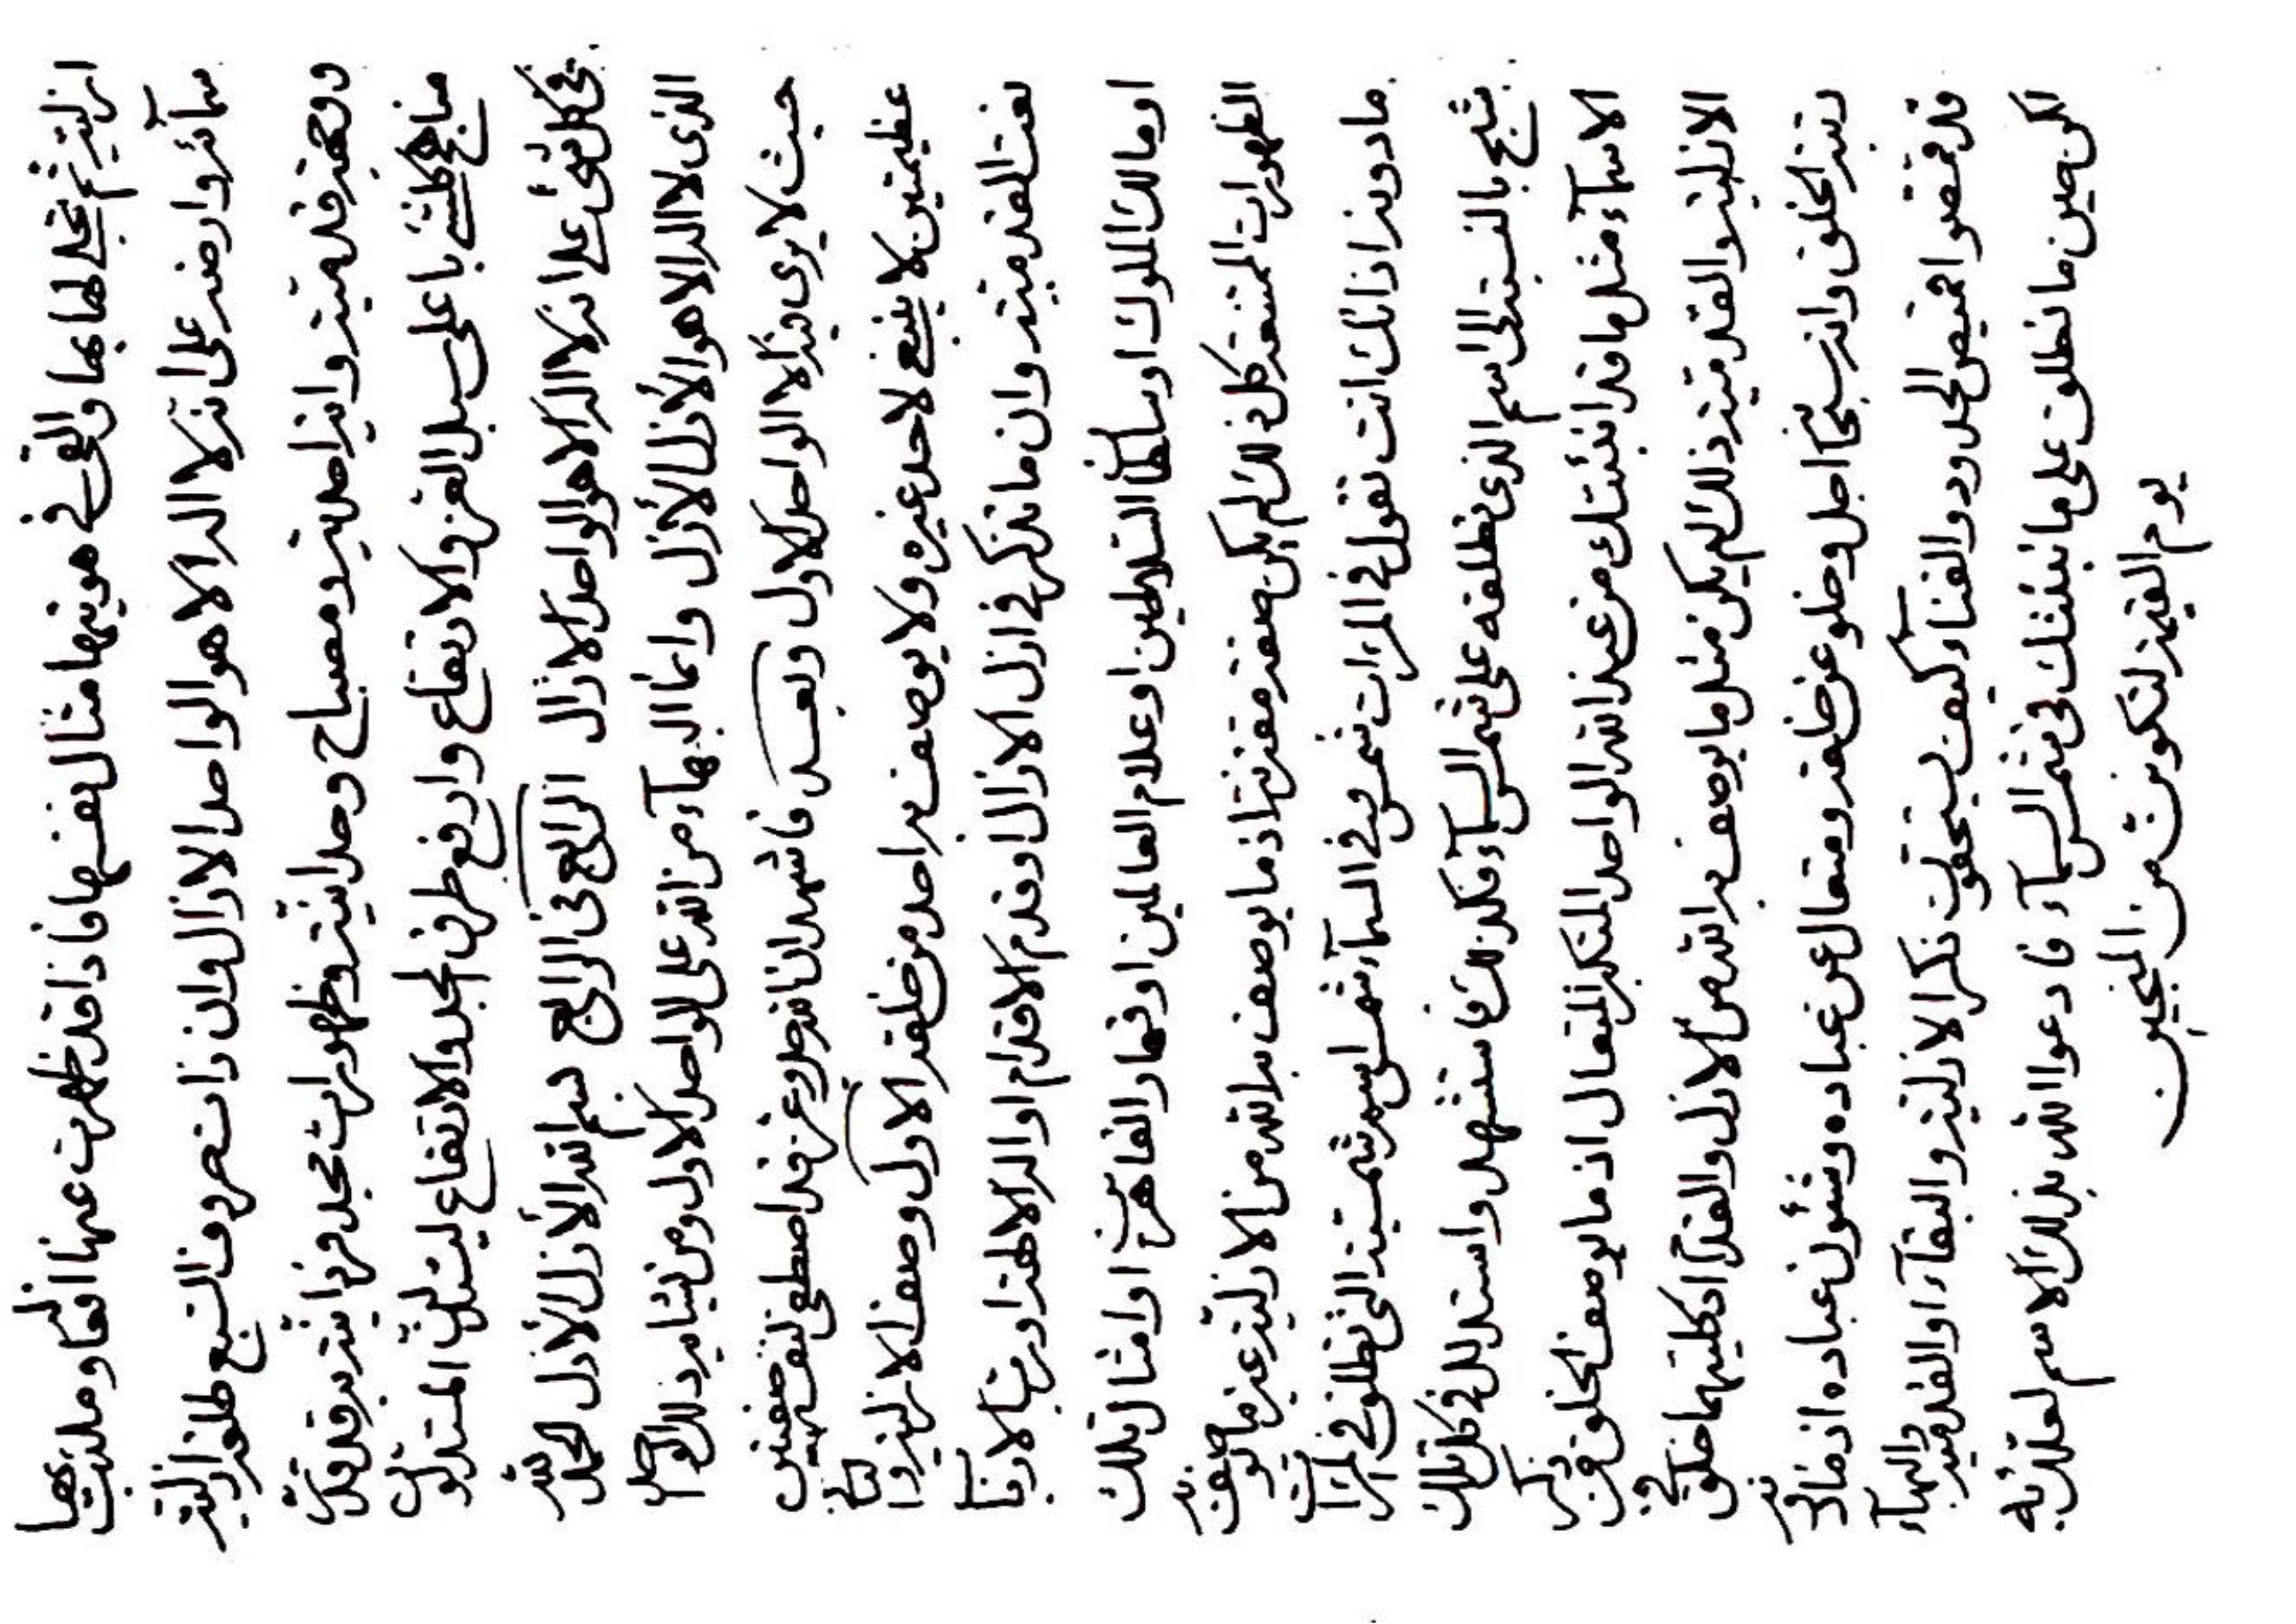 ازلیته ثم تجلی لها بها والقی فی هویتها مثال نفسها فاذا قد ظهرت عنها افعاله وملئت بها
سمائه وارضه علی انه لا اله الا هو الواحد الازال وان ذات حروف السبع طلعة ازلیته
ووجهة قدمیته وانیة احدیته ومصباح وحدانیته وظهورات مجد فردانیته به قد
مناهج باعلی سبل العز والارتفاع وارفع طرف المجد والامتناع
فی کل شیء علی انه لا اله الا هو الواحد الازال الرابع فی الرابع بسم الله الأزل الأزل الحمد لله
الذی لا اله الا هو الأزل الأزل وانما البهاء من الله علی الواحد الاول ومن یشابه ذلک الواحد
حیث لا یری فیه الا الواحد الاول وبعد فاشهد ان الله جل وعز قد اصطفی لنفسه صفتین
عظیمتین لا ینبغی لاحد غیره ولا یوصف به احد من خلقه الاول وصف الازلیة والثانی
نعت القدمیة وان ما تذکر فی ازل الازال او قدم الاقدام او اله الالهة او رب الارباب
او مالک الملوک او سلطان السلاطین او علام العالمین او قهار القاهرین او امثال تلک
الظهورات الممتنعة کل ذلک لم یکن صفة مقترنة اذ ما یوصف به الله من الازلیة غیر ما یوصف به
ما دونه اذ انک انت تقول فی المرآت شمس وفی السماء شمس اسم شمسیة التی تطلق فی المرآت
شبح بالنسبة الی اسم الذی تطلقه علی شمس السماء فکذلک فاستشهد واستدلل فی کل تلک
الاسماء مثل ما قد انبئتک من عند الله الواحد المتکبر المتعال اذ ما یوصف الخلق فی ذکر
الازلیة والقدمیة ذلک لم یکن مثل ما یوصف به الله من الازل والقدم اذ کلیتهما خلق فی
رتبة الخلق وانه سبحانه اجل وعلو عن خلقه ومتعال عن عباده وشئون عباده اذ ما
قد تقمصوا قمیص الحدود والفناء کیف یستحقون ذکر الازلیة والبقاء او القدمیة والبهاء
لکن حین ما تطلق علی ما انبئتک فی شمس السماء فادعوا الله بذلک الاسم لعلک به
یوم القیمة لتکونن من المنجین